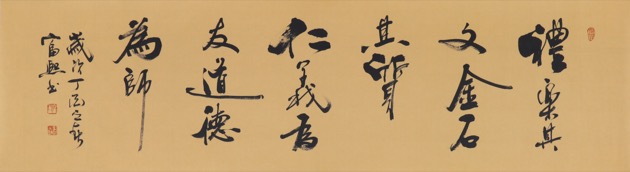 禮樂其
文金石
其質
仁義為
友道德
為師
歲次丁酉之
富熙书